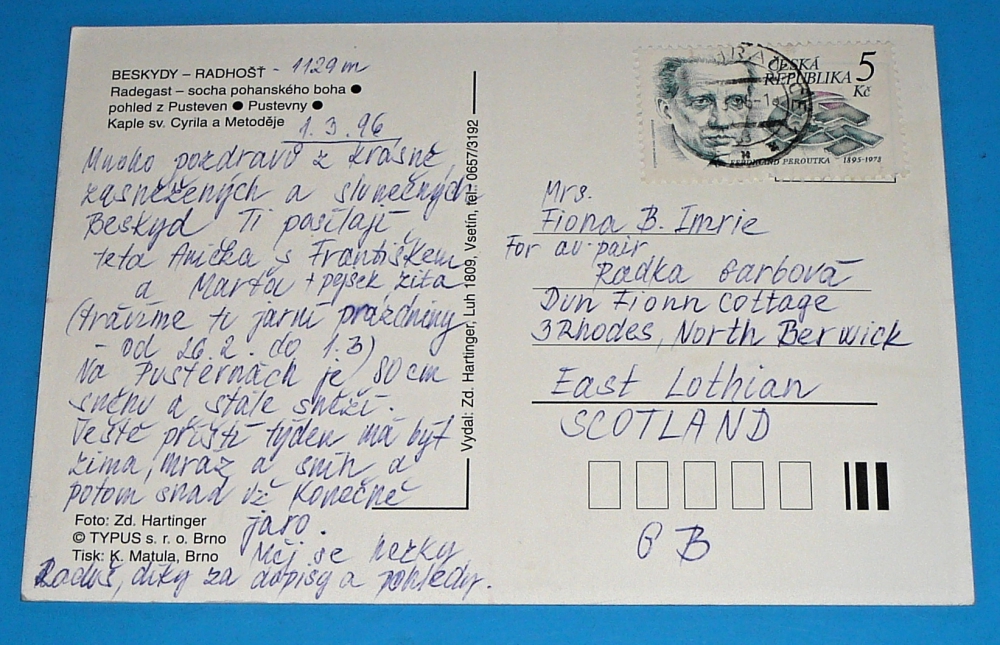 BESKYDY – RADHOŠŤ - 1129 m
Radegast – socha pohanského boha ●
pohled z Pusteven ● Pustevny ●
Kaple sv. Cyrila a Metoděje
1.3.96
Mnoho pozdravů z krásně
zasněžených a slunečných
Beskyd Ti posílají
teta Anička s Františkem
a Marťa + pejsek Zita
(trávíme tu jarní prázdniny
- od 26.2. do 1.3)
Na Pustevnách je 80 cm
sněhu a stále sněží.
Ještě příští týden má být
zima, mráz a sníh a
potom snad už konečně
jaro.
Měj se hezky
Raduš, díky za dopisy a pohledy.
Foto: Zd. Hartinger
© TYPUS s. r. o. Brno
Tisk: K. Matula, Brno
Vydal: Zd. Hartinger, Luh 1809, Vsetín, tel.: 0657/3192
ČESKÁ
REPUBLIKA 5
Kč
FERDINAND PEROUTKA 1895-1978
Mrs.
Fiona B. Imrie
For au-pair
Radka Garbová
Dun Fionn Cottage
3 Rhodes, North Berwick
East Lothian
SCOTLAND
GB